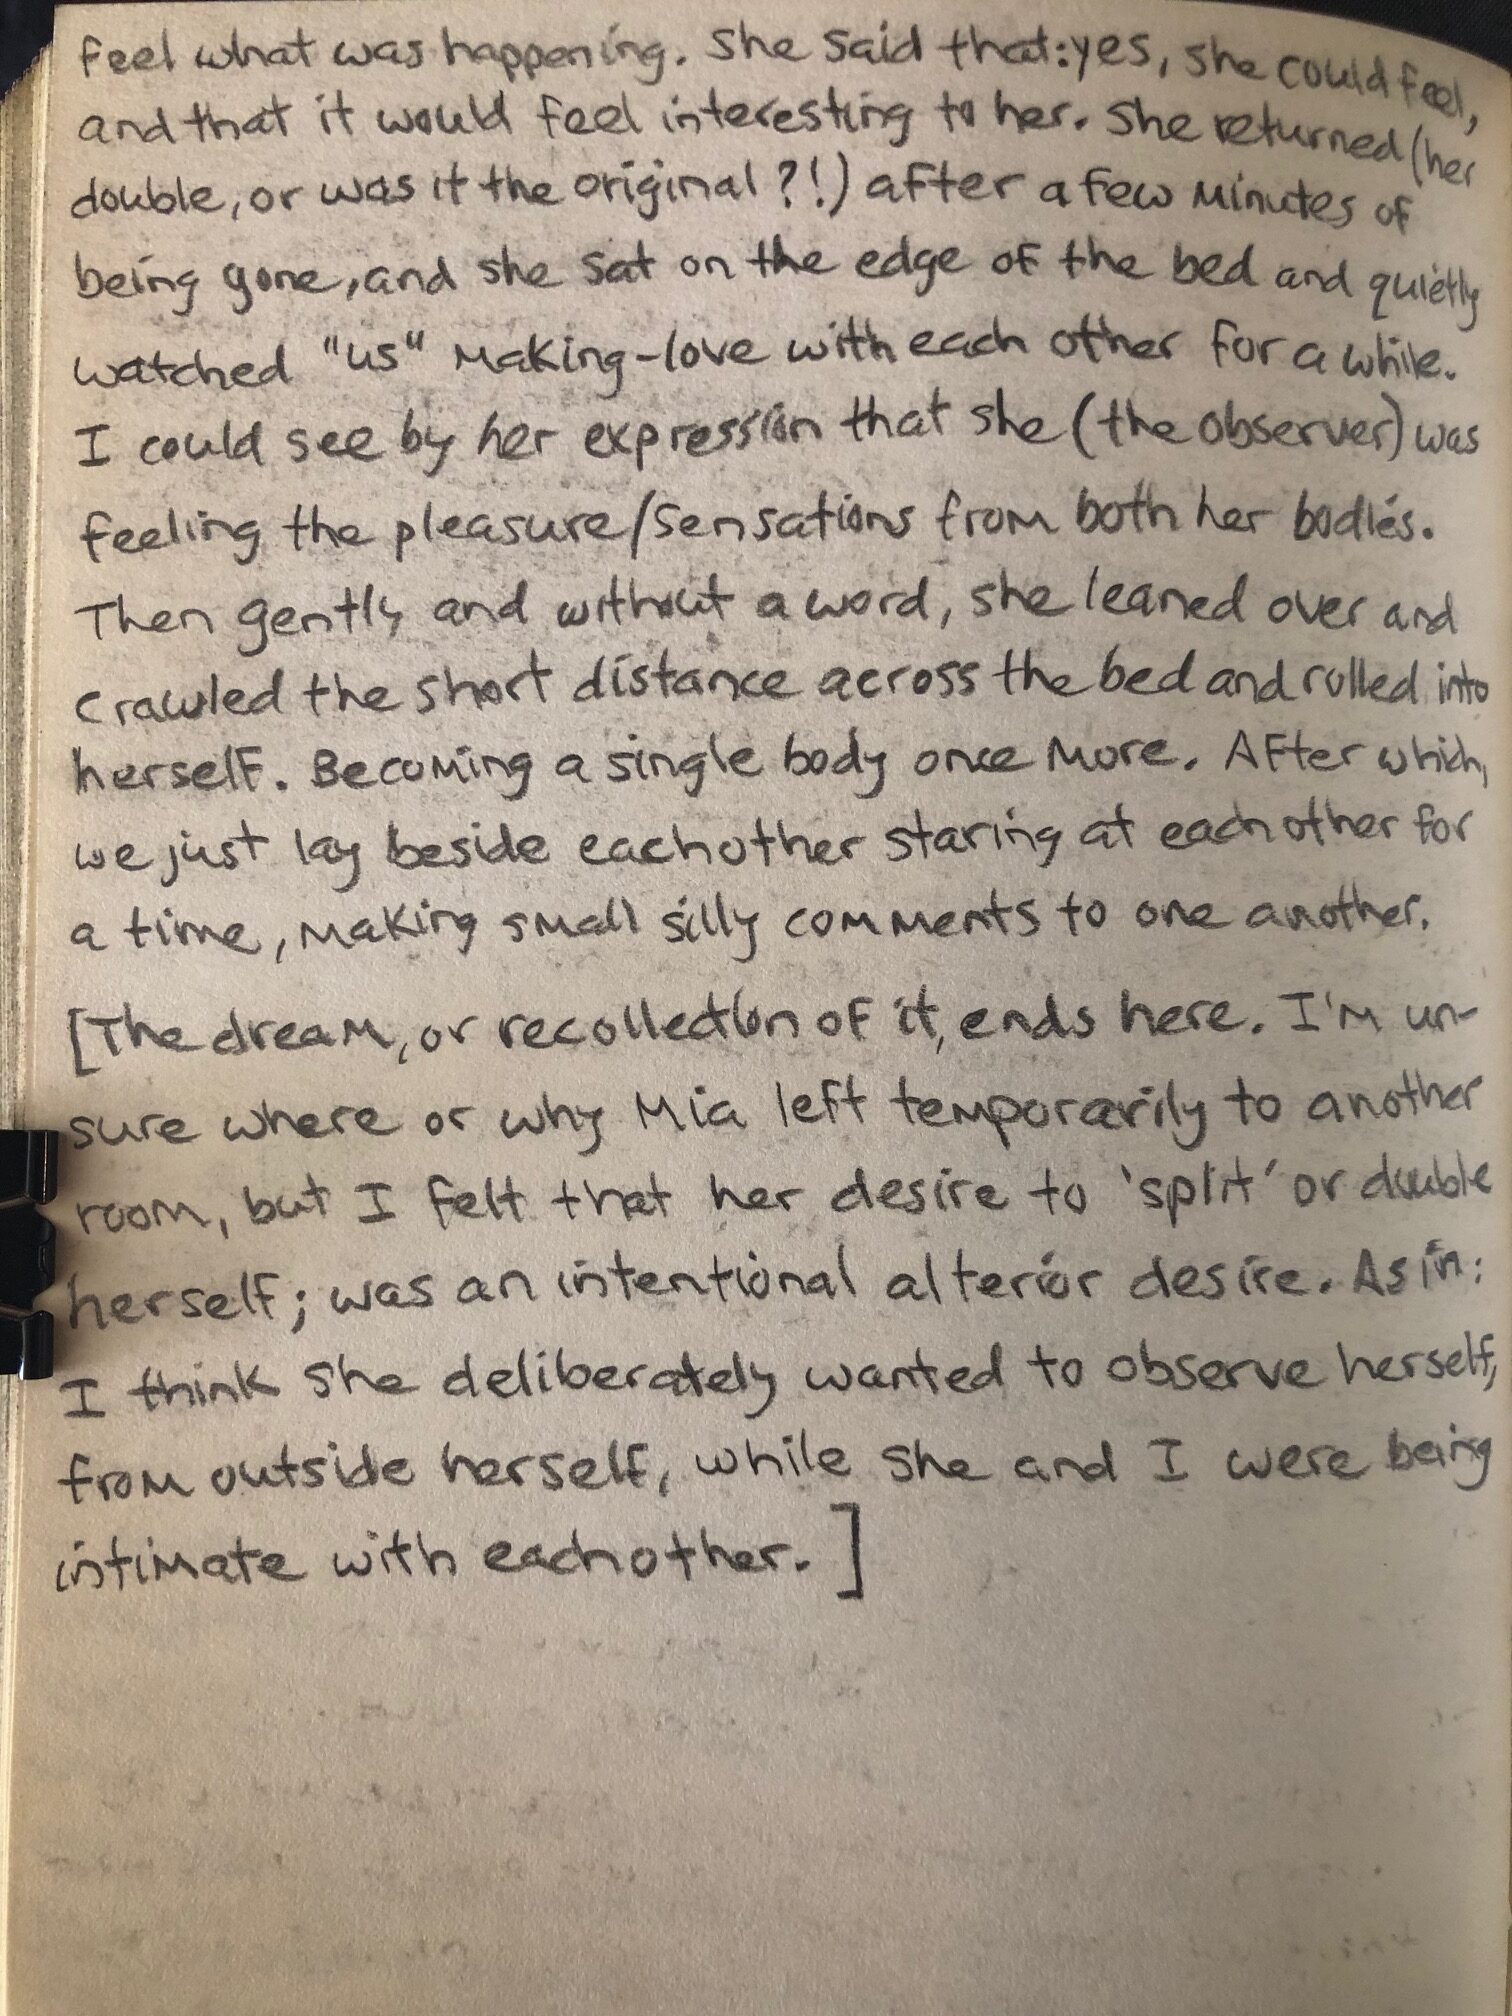 feel what was happening. She said that: yes, she could feel,
and that it would feel interesting to her. She returned (her
double, or was it the original?!) after a few minutes of
being gone, and she sat on the edge of the bed and quietly
watched "us" making-love with each other for a while.
I could see by her expression that she (the observer) was
feeling the pleasure/sensations from both her bodies.
Then gently and without a word, she leaned over and
crawled the short distance across the bed and rolled into
herself. Becoming a single body once more. After which,
we just lay beside eachother staring at each other for
a time, making small silly comments to one another.
[The dream, or recollection of it, ends here. I'm un-
sure where or why Mia left temporarily to another
room, but I felt that her desire to 'split' or double
herself; was an intentional alterior desire. As in:
I think she deliberately wanted to observe herself,
from outside herself, while she and I were being
intimate with eachother.]